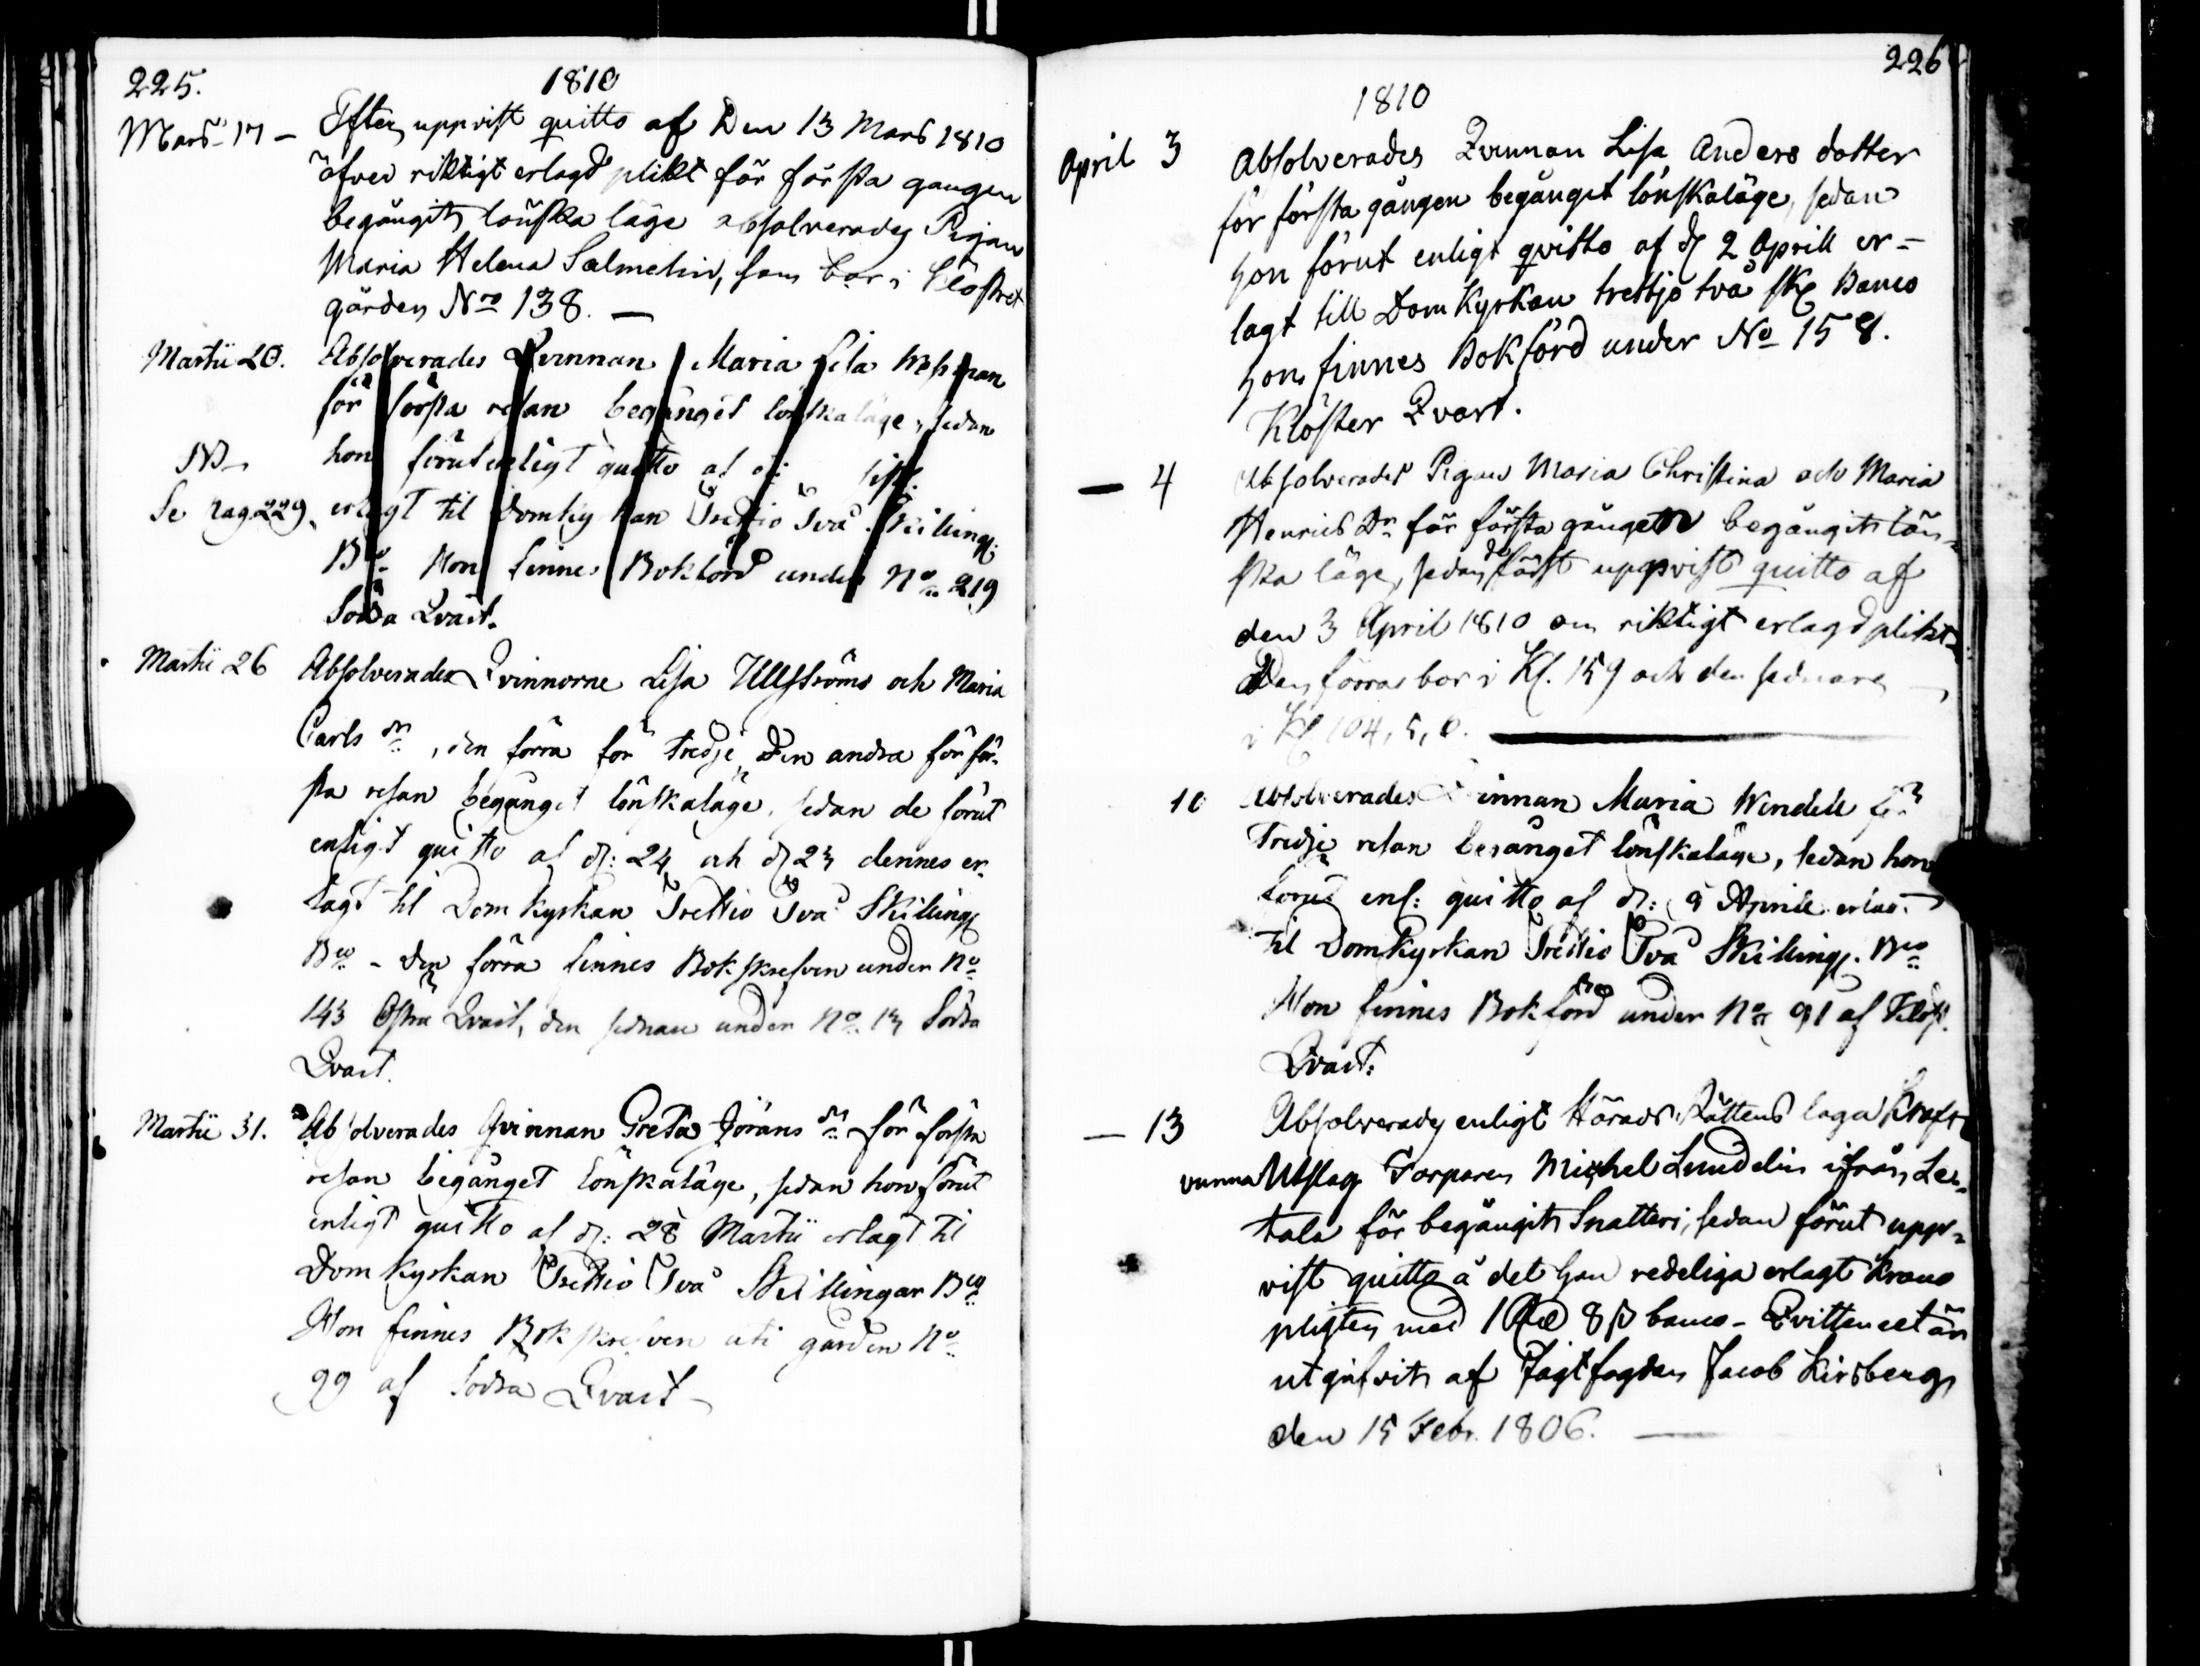 225.
1810
Mars 17 — Efter uppvist quitto af Den 13 Mars 1810
öfver riktigt erlagd plikt för första gangen
begångit lönska läge absolverades Pigan
Maria Helena Salmelin, som bor i Klostret
gården Nro 138. —
Martii 20. Absolverades Qvinnan Maria Lisa
för första resan begånget lönskaläge, sedan
NB hon förut enligt quitto af d:
Se pag 229. erlagt til Domkyrkan Trettio Två Skilling
Bco Hon finnes Bokförd under No 219
Södra Qvart.
Martii 26 Absolverades Qvinnorne Lisa Ullströms och Maria
Carls dr, den förra för tredje, Den andra för för-
sta resan begånget lönskaläge, sedan de förut
enligt quitto af d: 24 och d 23 dennes er-
lagt til Domkyrkan Trettio Två Skilling
Bco – den förra finnes Bokskrefven under No
143 Östra Qvart, den sednare under No 13 Södra
Qvart.
Martii 31. Absolverades Qvinnan Greta Jörans dr för första
resan begånget lönskaläge, sedan hon förut
enligt quitto af d: 28 Martii erlagt til
Domkyrkan Trettio Två Skillingar Bco
Hon finnes Bokskrefven uti gården No
99 af Södra Qvart
226
1810
April 3 Absolverades Qvinnan Lisa Anders dotter
för första gången begånget lönskaläge, sedan
hon förut enligt qvitto af d 2 Aprill er-
lagt till DomKyrkan trettjo två sk Banco
hon finnes Bokförd under No 158.
Klöster Qvart.
— 4 Absolverades Pigan Maria Christina och Maria
Henrics Dr för första gånget begångit lön-
ska läge, sedan de först uppvist quitto af
den 3 April 1810 om riktigt erlagd plikt
Den förra bor i Kl. 159 och den sednare
i Kl 104, 5, 6.
10 Absolverades Qvinnan Maria Windell för
Tredje resan begånget lönskaläge, sedan hon
förut enl: quitto af d: 9 Aprill erlagt
til Domkyrkan Trettio Två Skilling. Bco
Hon finnes Bokförd under No 91 af Klöst.
Qvart.
— 13 Absolverades enligt Härads Rättens laga kraft
vunna Utslag Torparen Michel Lundelin ifrån Le-
tala för begångit Snatteri, sedan förut upp-
vist quitto å det han redeliga erlagt Krono
plikten med 1 8 ß banco – Qvittencet är
utgifvit af Jagtfogden Jacob Kirsberg
den 15 Febr. 1806. —